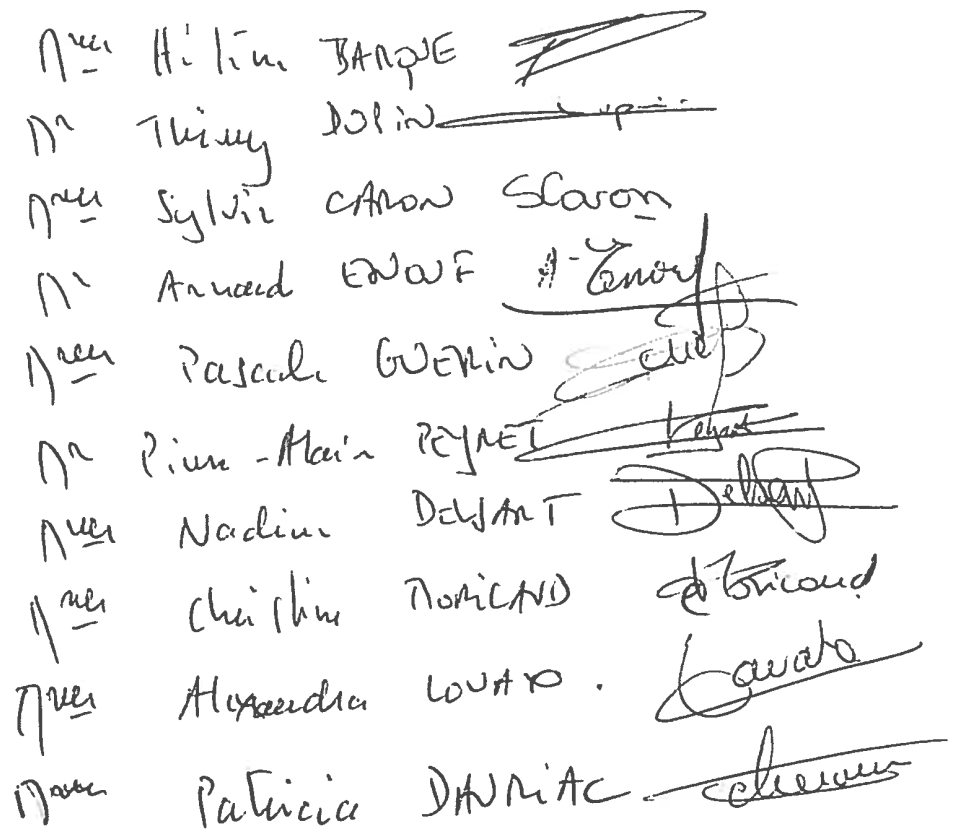 Mme Hélène BARQUE
Mr Thierry DUPIN
Mme Sylvie CARON SCaron
Mr Arnaud ENOUF A-Enouf
Mme Pascale GUERIN
Mr Pierre-Alain PEYNET Peynet
Mme Nadine DELSART Delsart
Mme Christine MORICAND Moricand
Mme Alexandra LOVATO. Lovato
Mme Patricia DAURIAC